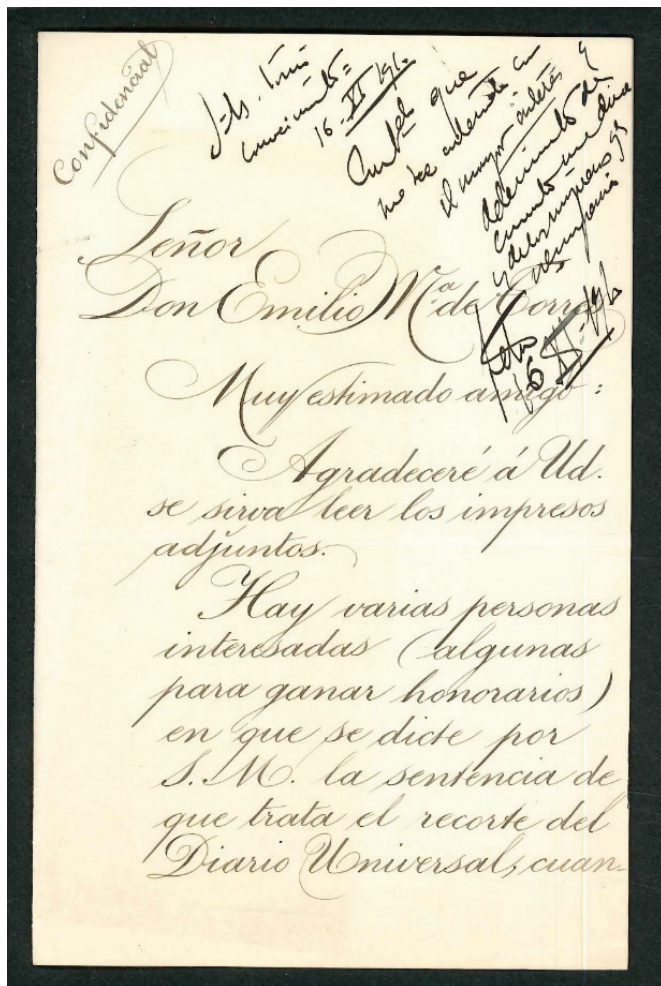 Confidencial
16 - XI 1910
que
el mayor interés y
Señor
Don Emilio Mª de Torres
16 XI - 1910
Muy estimado amigo :
Agradeceré á Ud.
se sirva leer los impresos
adjuntos.
Hay varias personas
interesadas (algunas
para ganar honorarios)
en que se dicte por
S. M. la sentencia de
que trata el recorte del
Diario Universal, cuan-